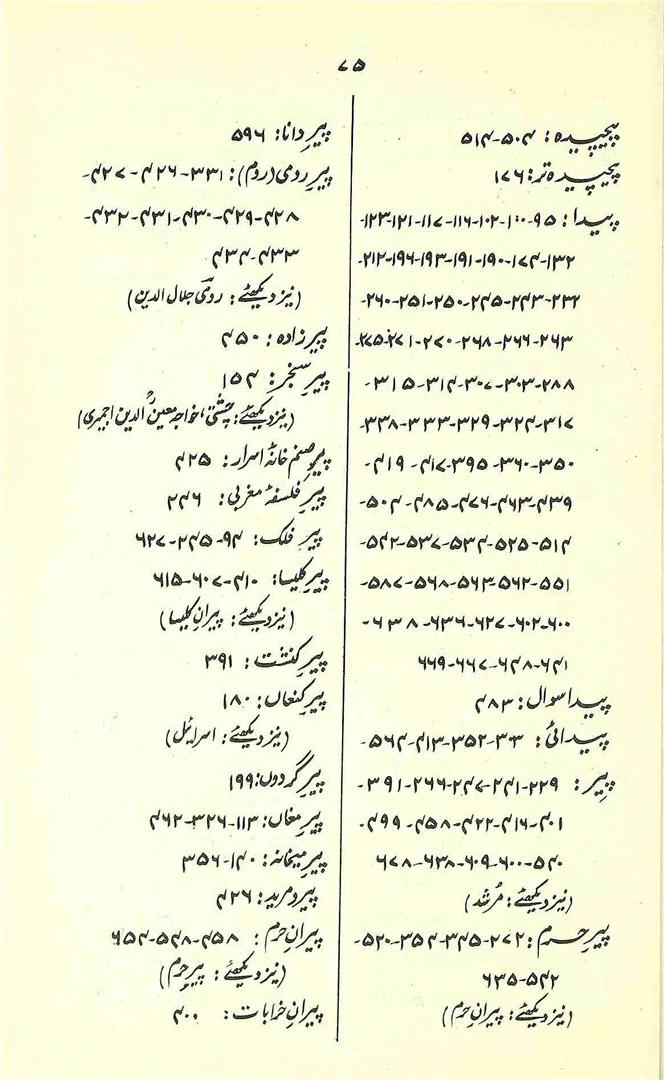 ۷۵
پیچیدہ: ۵۰۴-۵۱۴
پیچیدہ تر: ۱۷۶
پیدا: ۹۵-۱۰۰-۱۰۲-۱۱۶-۱۱۷-۱۲۱-۱۲۳-
۱۳۲-۱۷۴-۱۹۰-۱۹۱-۱۹۳-۱۹۶-۲۱۲-
۲۳۲-۲۴۳-۲۴۵-۲۵۰-۲۵۱-۲۶۰-
۲۶۳-۲۶۶-۲۶۸-۲۷۰-۲۷۱-۲۷۵-
۲۸۸-۳۰۳-۳۰۷-۳۱۴-۳۱۵-
۳۱۷-۳۲۴-۳۲۹-۳۳۳-۳۳۸-
۳۵۰-۳۶۰-۳۹۵-۴۱۷-۴۱۹-
۴۳۹-۴۶۳-۴۷۶-۴۸۵-۵۰۴-
۵۱۴-۵۲۵-۵۳۴-۵۳۷-۵۴۲-
۵۵۱-۵۶۲-۵۶۳-۵۶۸-۵۸۷-
۶۰۰-۶۰۲-۶۲۷-۶۳۶-۶۳۸-
۶۴۱-۶۴۸-۶۶۷-۶۶۹
پیدا سوال: ۴۸۳
پیدائی: ۳۰۳-۳۵۲-۴۱۳-۵۶۴-
پیر: ۲۲۹-۲۴۱-۲۴۷-۲۶۶-۳۹۱-
۴۰۱-۴۱۶-۴۲۲-۴۵۸-۴۹۹-
۵۴۰-۶۰۰-۶۰۹-۶۳۸-۶۷۸
(نیز دیکھئے: مُرشد)
پیرِ حرم: ۲۷۲-۳۴۵-۳۵۴-۵۲۰-
۵۴۲-۶۳۵
(نیز دیکھئے: پیرانِ حرم)
پیرِ دانا: ۵۹۶
پیرِ رومی (روم): ۳۳۱-۴۲۶-۴۲۷-
۴۲۸-۴۲۹-۴۳۰-۴۳۱-۴۳۲-
۴۳۳-۴۳۴
(نیز دیکھئے: رومیؒ جلال الدین)
پیرزادہ: ۴۵۰
پیرِ سنجر: ۱۵۴
(نیز دیکھئے: چشتیؒ، خواجہ معین الدین اجمیری)
پیرِ صنم خانۂ اسرار: ۴۲۵
پیرِ فلسفۂ مغربی: ۲۴۶
پیرِ فلک: ۹۴-۲۴۵-۶۲۷
پیرِ کلیسا: ۴۱۰-۶۰۷-۶۱۵
(نیز دیکھئے: پیرانِ کلیسا)
پیرِ کنشت: ۳۹۱
پیرِ کنعاں: ۱۸۰
(نیز دیکھئے: اسرائیل)
پیرِ گردوں: ۱۹۹
پیرِ مغاں: ۱۱۳-۳۲۶-۴۶۲
پیرِ میخانہ: ۱۴۰-۳۵۶
پیر و مرید: ۴۲۶
پیرانِ حرم: ۴۵۸-۵۴۸-۶۵۴
(نیز دیکھئے: پیرِ حرم)
پیرانِ خرابات: ۴۰۰